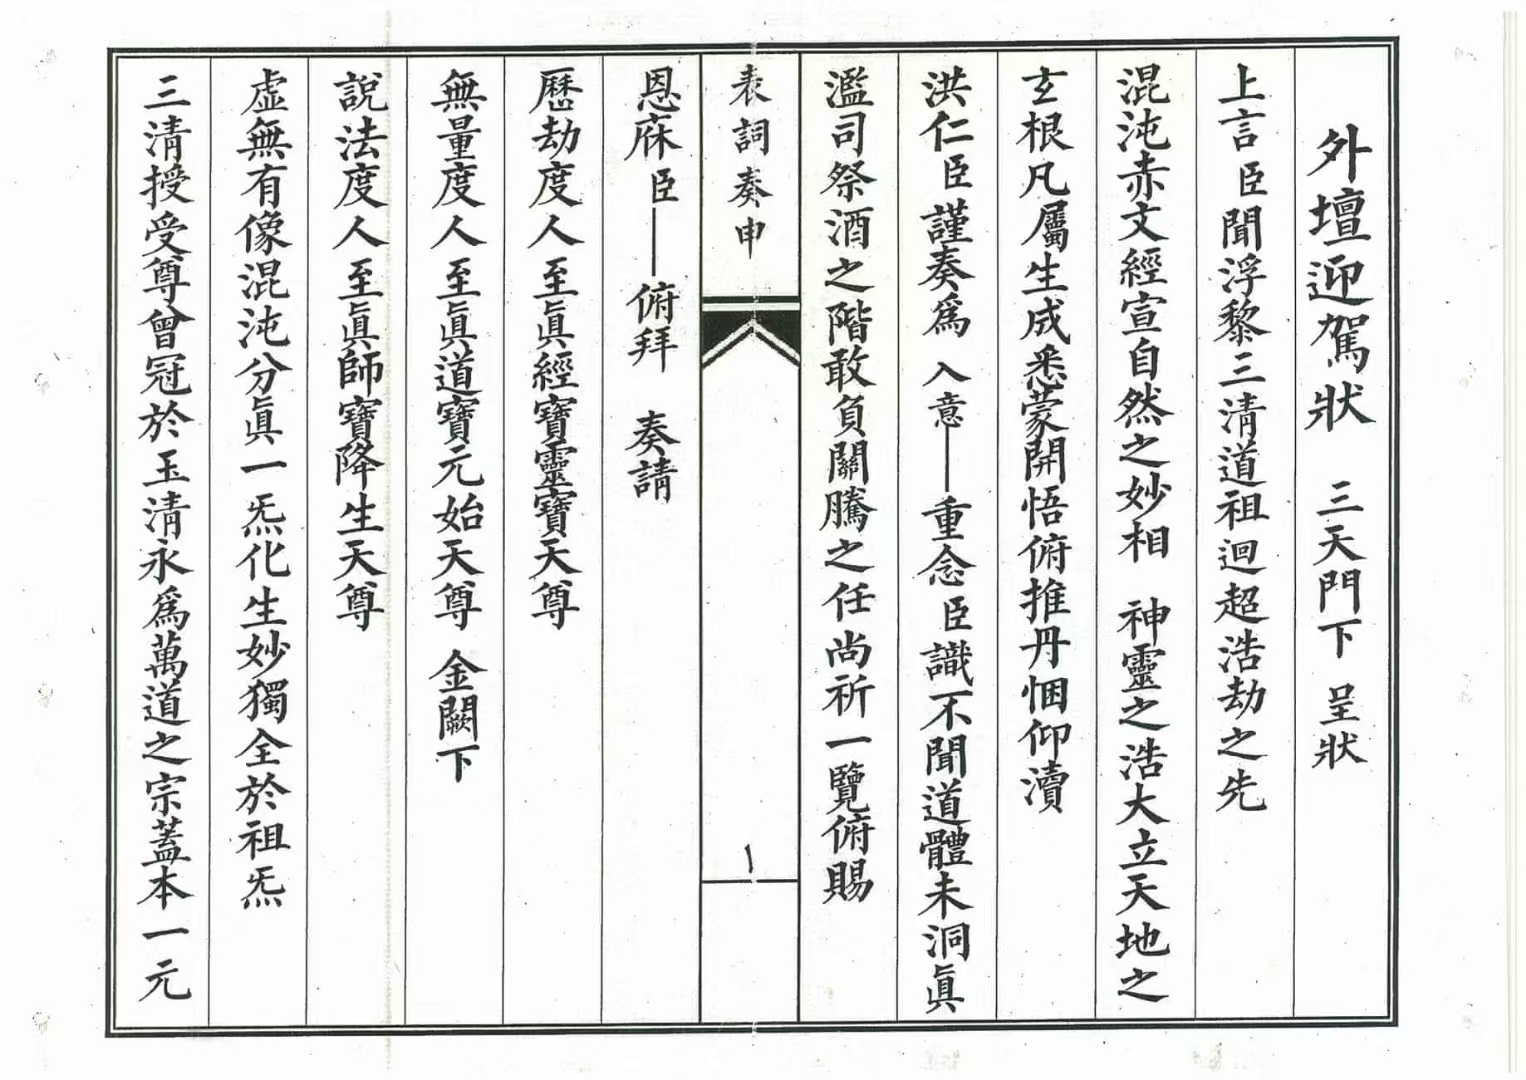 外壇迎駕狀　三天門下　呈狀
上言臣聞浮黎三清道祖迥超浩劫之先
混沌赤文經宣自然之妙相　神靈之浩大立天地之
玄根凡屬生成悉蒙開悟俯推丹悃仰瀆
洪仁臣謹奏爲　入意——重念臣識不聞道體未洞眞
濫司祭酒之階敢負關騰之任尚祈一覽俯賜
表詞奏申
一
恩庥臣——俯拜　奏請
歷劫度人至眞經寶靈寶天尊
無量度人至眞道寶元始天尊　金闕下
說法度人至眞師寶降生天尊
虛無有像混沌分眞一炁化生妙獨全於祖炁
三清授受尊曾冠於玉清永爲萬道之宗蓋本一元